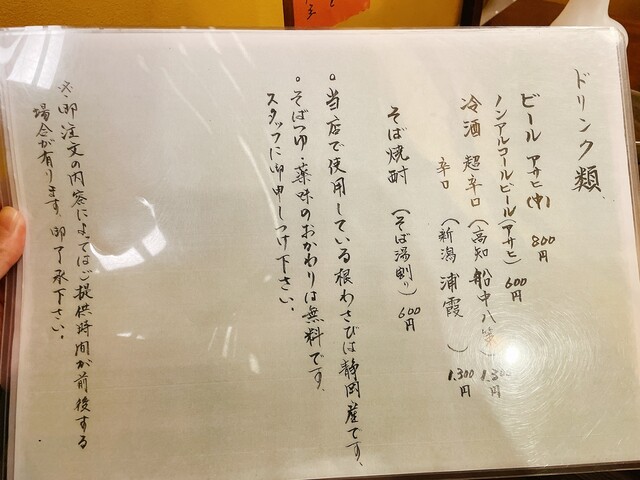 ドリンク類
ビール アサヒ(中) 800円
ノンアルコールビール(アサヒ) 600円
冷酒 超辛口 (高知 船中八策) 1,300円
辛口 (新潟 浦霞) 1,300円
そば焼酎 (そば湯割り) 600円
。当店で使用している根わさびは静岡産です。
。そばつゆ・薬味のおかわりは無料です。
スタッフに御申しつけ下さい。
※御注文の内容によってはご提供時間が前後する
場合が有ります。御了承下さい。